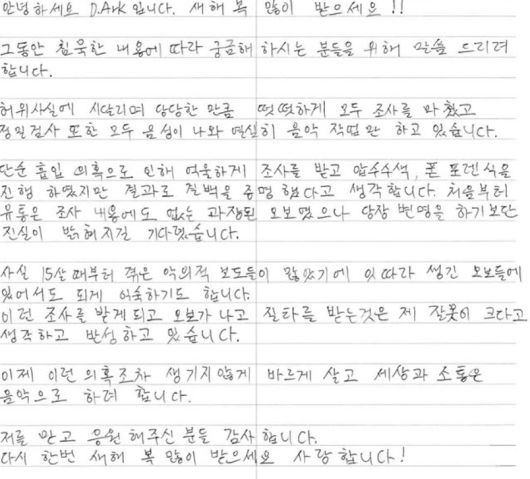 안녕하세요 D.Ark 입니다. 새해 복 많이 받으세요 !!
그동안 침묵한 내용에 따라 궁금해 하시는 분들을 위해 말씀 드리려
합니다.
허위사실에 시달리며 당당한 만큼 떳떳하게 모두 조사를 마쳤고
정밀검사 또한 모두 음성이 나와 열심히 음악 작업만 하고 있습니다.
단순 흡입 의혹으로 인해 억울하게 조사를 받고 압수수색, 폰 포렌식을
진행 하였지만 결과로 결백을 증명 했다고 생각합니다. 처음부터
유통은 조사 내용에도 없는 과장된 오보였으나 당장 변명을 하기보단
진실이 밝혀지길 기다렸습니다.
사실 15살 때부터 겪은 악의적 보도들이 많았기에 잇따라 생긴 오보들에
있어서도 되게 억숙하기도 합니다.
이런 조사를 받게되고 오보가 나고 질타를 받는것은 제 잘못이 크다고
생각하고 반성하고 있습니다.
이제 이런 의혹조차 생기지않게 바르게 살고 세상과 소통은
음악으로 하려 합니다.
저를 믿고 응원해주신 분들 감사합니다.
다시 한번 새해 복 많이 받으세요 사랑합니다!